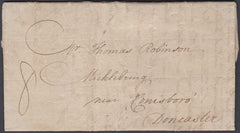 Mr Thomas Robinson
Micklebring
near Conisboro'
Doncaster
8